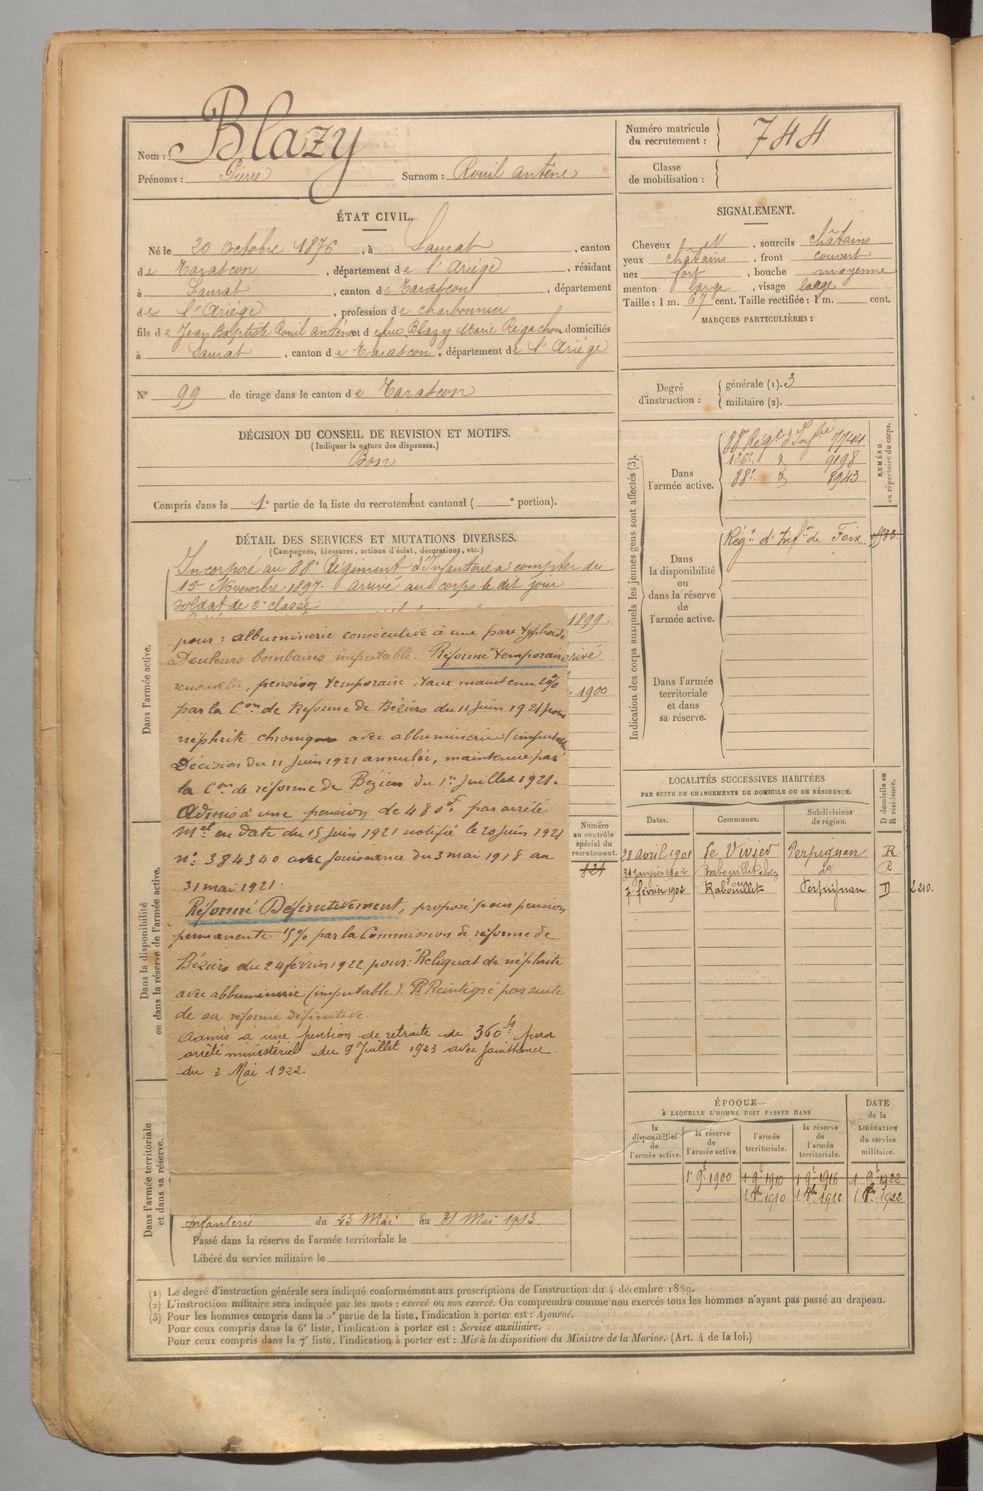 Nom : Blazy
Prénoms : Pierre Surnom : Rouil antène
Numéro matricule du recrutement : 744
Classe de mobilisation :
ÉTAT CIVIL.
Né le 20 Octobre 1876, à Saurat, canton
de Tarascon, département de l'Ariége, résidant
à Saurat, canton de Tarascon, département
de l'Ariége, profession de charbonnier
fils de Jean Baptiste Rouil antène et de feue Blazy Marie domiciliés
à Saurat, canton de Tarascon, département de l'Ariége
N° 99 de tirage dans le canton de Tarascon
DÉCISION DU CONSEIL DE REVISION ET MOTIFS.
(Indiquer la nature des dispenses.)
Bon
Compris dans la 1e partie de la liste du recrutement cantonal ( e portion).
DÉTAIL DES SERVICES ET MUTATIONS DIVERSES.
(Campagnes, blessures, actions d'éclat, décorations, etc.)
Incorporé au 88e Régiment d'Infanterie à compter du
15 Novembre 1897. Arrivé au corps le dit jour
soldat de 2e classe
1899
rivé
1900
pour : albuminerie consécutive à une para typhoide
Douleurs lombaires imputable. Réformé temporaire
renouvelée, pension temporaire, taux maintenu 20%
par la Con de Réforme de Béziers du 11 juin 1921 pour
néphrite chronique avec albuminerie (imputable
Décision du 11 Juin 1921 annulée, maintenue par
la Con de réforme de Béziers du 1er Juillet 1921.
Admis à une pension de 480f par arrêté
Mel en date du 15 juin 1921 notifié le 20 juin 1921
n° 384340 avec jouissance du 3 mai 1918 au
31 mai 1921.
Réformé Définitivement, proposé pour pension
permanente 15% par la Commission de réforme de
Béziers du 24 février 1922 pour : Reliquat de néphrite
avec albuminerie (imputable). Réintégré par suite
de sa réforme définitive.
Admis à une pention de retraite de 360 fs par
arrêté ministériel du 9 Juillet 1923 avec jouissance
du 3 Mai 1922.
Infanterie du 23 Mai au 31 Mai 1913.
Passé dans la réserve de l'armée territoriale le
Libéré du service militaire le
Dans l'armée active.
Dans la disponibilité
ou dans la réserve de l'armée active.
Dans l'armée territoriale
et dans sa réserve.
Numéro
au contrôle
spécial du
recrutement.
SIGNALEMENT.
Cheveux et, sourcils châtains
yeux châtains, front couvert
nez fort, bouche moyenne
menton large, visage large
Taille : 1 m. 67 cent. Taille rectifiée : 1 m. cent.
MARQUES PARTICULIÈRES :
Degré d'instruction : générale (1). 3
militaire (2).
Indication des corps auxquels les jeunes gens sont affectés (3).
NUMÉRO
au répertoire du corps.
Dans
l'armée active.
88e Régt d'Infrie 7744
126e d 9198
88e d 8943
Dans
la disponibilité
ou
dans la réserve
de
l'armée active.
Régnt d'Infrie de Foix
Dans l'armée
territoriale
et dans
sa réserve.
LOCALITÉS SUCCESSIVES HABITÉES
PAR SUITE DE CHANGEMENTS DE DOMICILE OU DE RÉSIDENCE.
Dates. Communes. Subdivisions de région. D domicile ou R résidence.
28 avril 1901 Le Vivier Perpignan R
31 Janvier 1902 Rabouillet do R
7 février 1904 Rabouillet Perpignan D
ÉPOQUE
À LAQUELLE L'HOMME DOIT PASSER DANS
la disponibilité de l'armée active. la réserve de l'armée active. l'armée territoriale. la réserve de l'armée territoriale.
DATE de la LIBÉRATION du service militaire.
1r 9e 1900 1 9e 1910 1 9e 1916 1 9e 1922
1 8bre 1910 1 8bre 1916 1 8bre 1922
(1) Le degré d'instruction générale sera indiqué conformément aux prescriptions de l'instruction du 4 décembre 1889.
(2) L'instruction militaire sera indiquée par les mots : exercé ou non exercé. On comprendra comme non exercés tous les hommes n'ayant pas passé au drapeau.
(3) Pour les hommes compris dans la 5e partie de la liste, l'indication à porter est : Ajourné.
Pour ceux compris dans la 6e liste, l'indication à porter est : Service auxiliaire.
Pour ceux compris dans la 7e liste, l'indication à porter est : Mis à la disposition du Ministre de la Marine. (Art. 4 de la loi.)